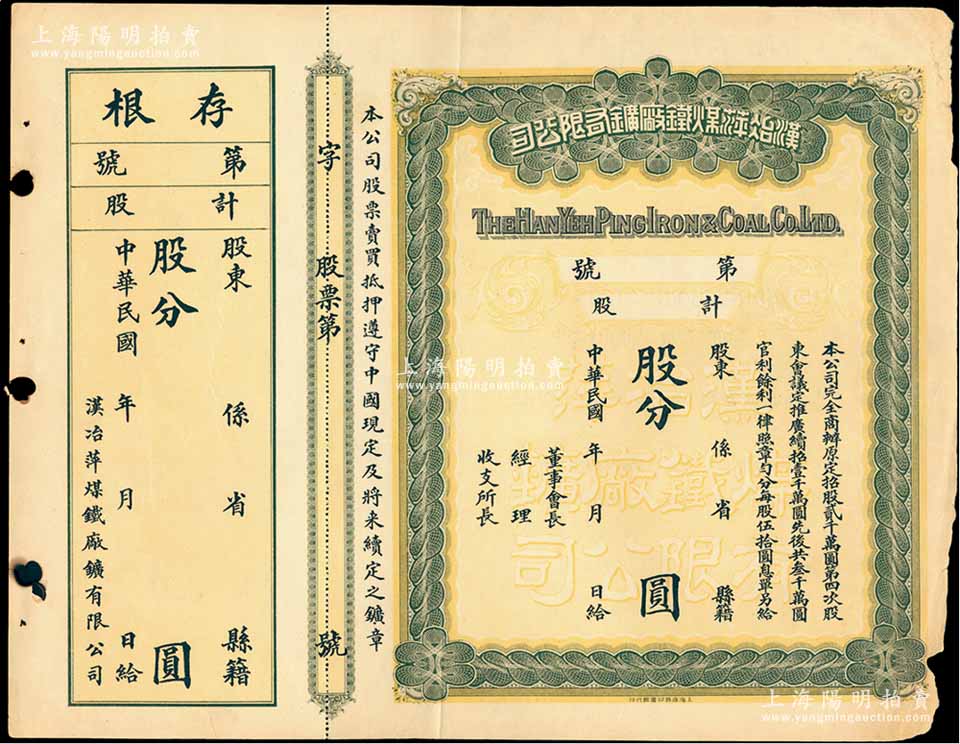 上海陽明拍賣
www.yangmingauction.com
漢冶萍煤鐵廠鑛有限公司
THE HAN YEH PING IRON & COAL CO. LTD.
第 號
計 股
本公司完全商辦原定招股貳千萬圓第四次股
東會議定推廣續招壹千萬圓先後共叁千萬圓
官利餘利一律照章勻分每股伍拾圓息單另給
股東 係 省 縣籍
股分 圓
中華民國 年 月 日給
董事會長
經理
收支所長
漢冶萍
煤鐵廠鑛
有限公司
本公司股票賣買抵押遵守中國現定及將來續定之鑛章
字 股票第 號
存根
第 號
計 股
股東 係 省 縣籍
股分 圓
中華民國 年 月 日給
漢冶萍煤鐵廠鑛有限公司
上海陽明拍賣
www.yangmingauction.com
上海陽明拍賣
www.yangmingauction.com